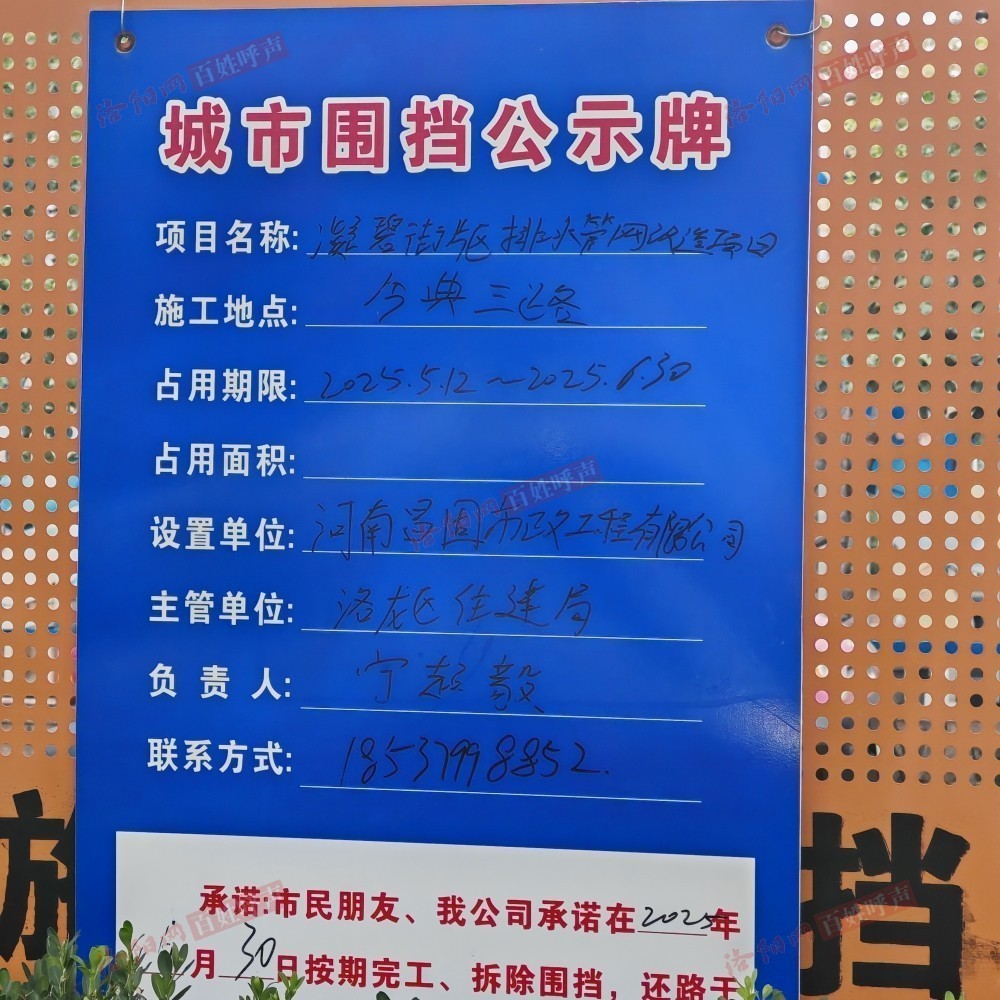 城市围挡公示牌
项目名称: 凝碧街片区排水管网改造项目
施工地点: 今典三路
占用期限: 2025.5.12~2025.6.30
占用面积:
设置单位: 河南昌固市政工程有限公司
主管单位: 洛龙区住建局
负责人: 宁超毅
联系方式: 18537998852.
承诺:市民朋友、我公司承诺在2025年
月30日按期完工、拆除围挡，还路于
施
挡
洛阳网 百姓呼声
洛阳网 百姓呼声
洛阳网 百姓呼声
洛阳网 百姓呼声
洛阳网 百姓呼声